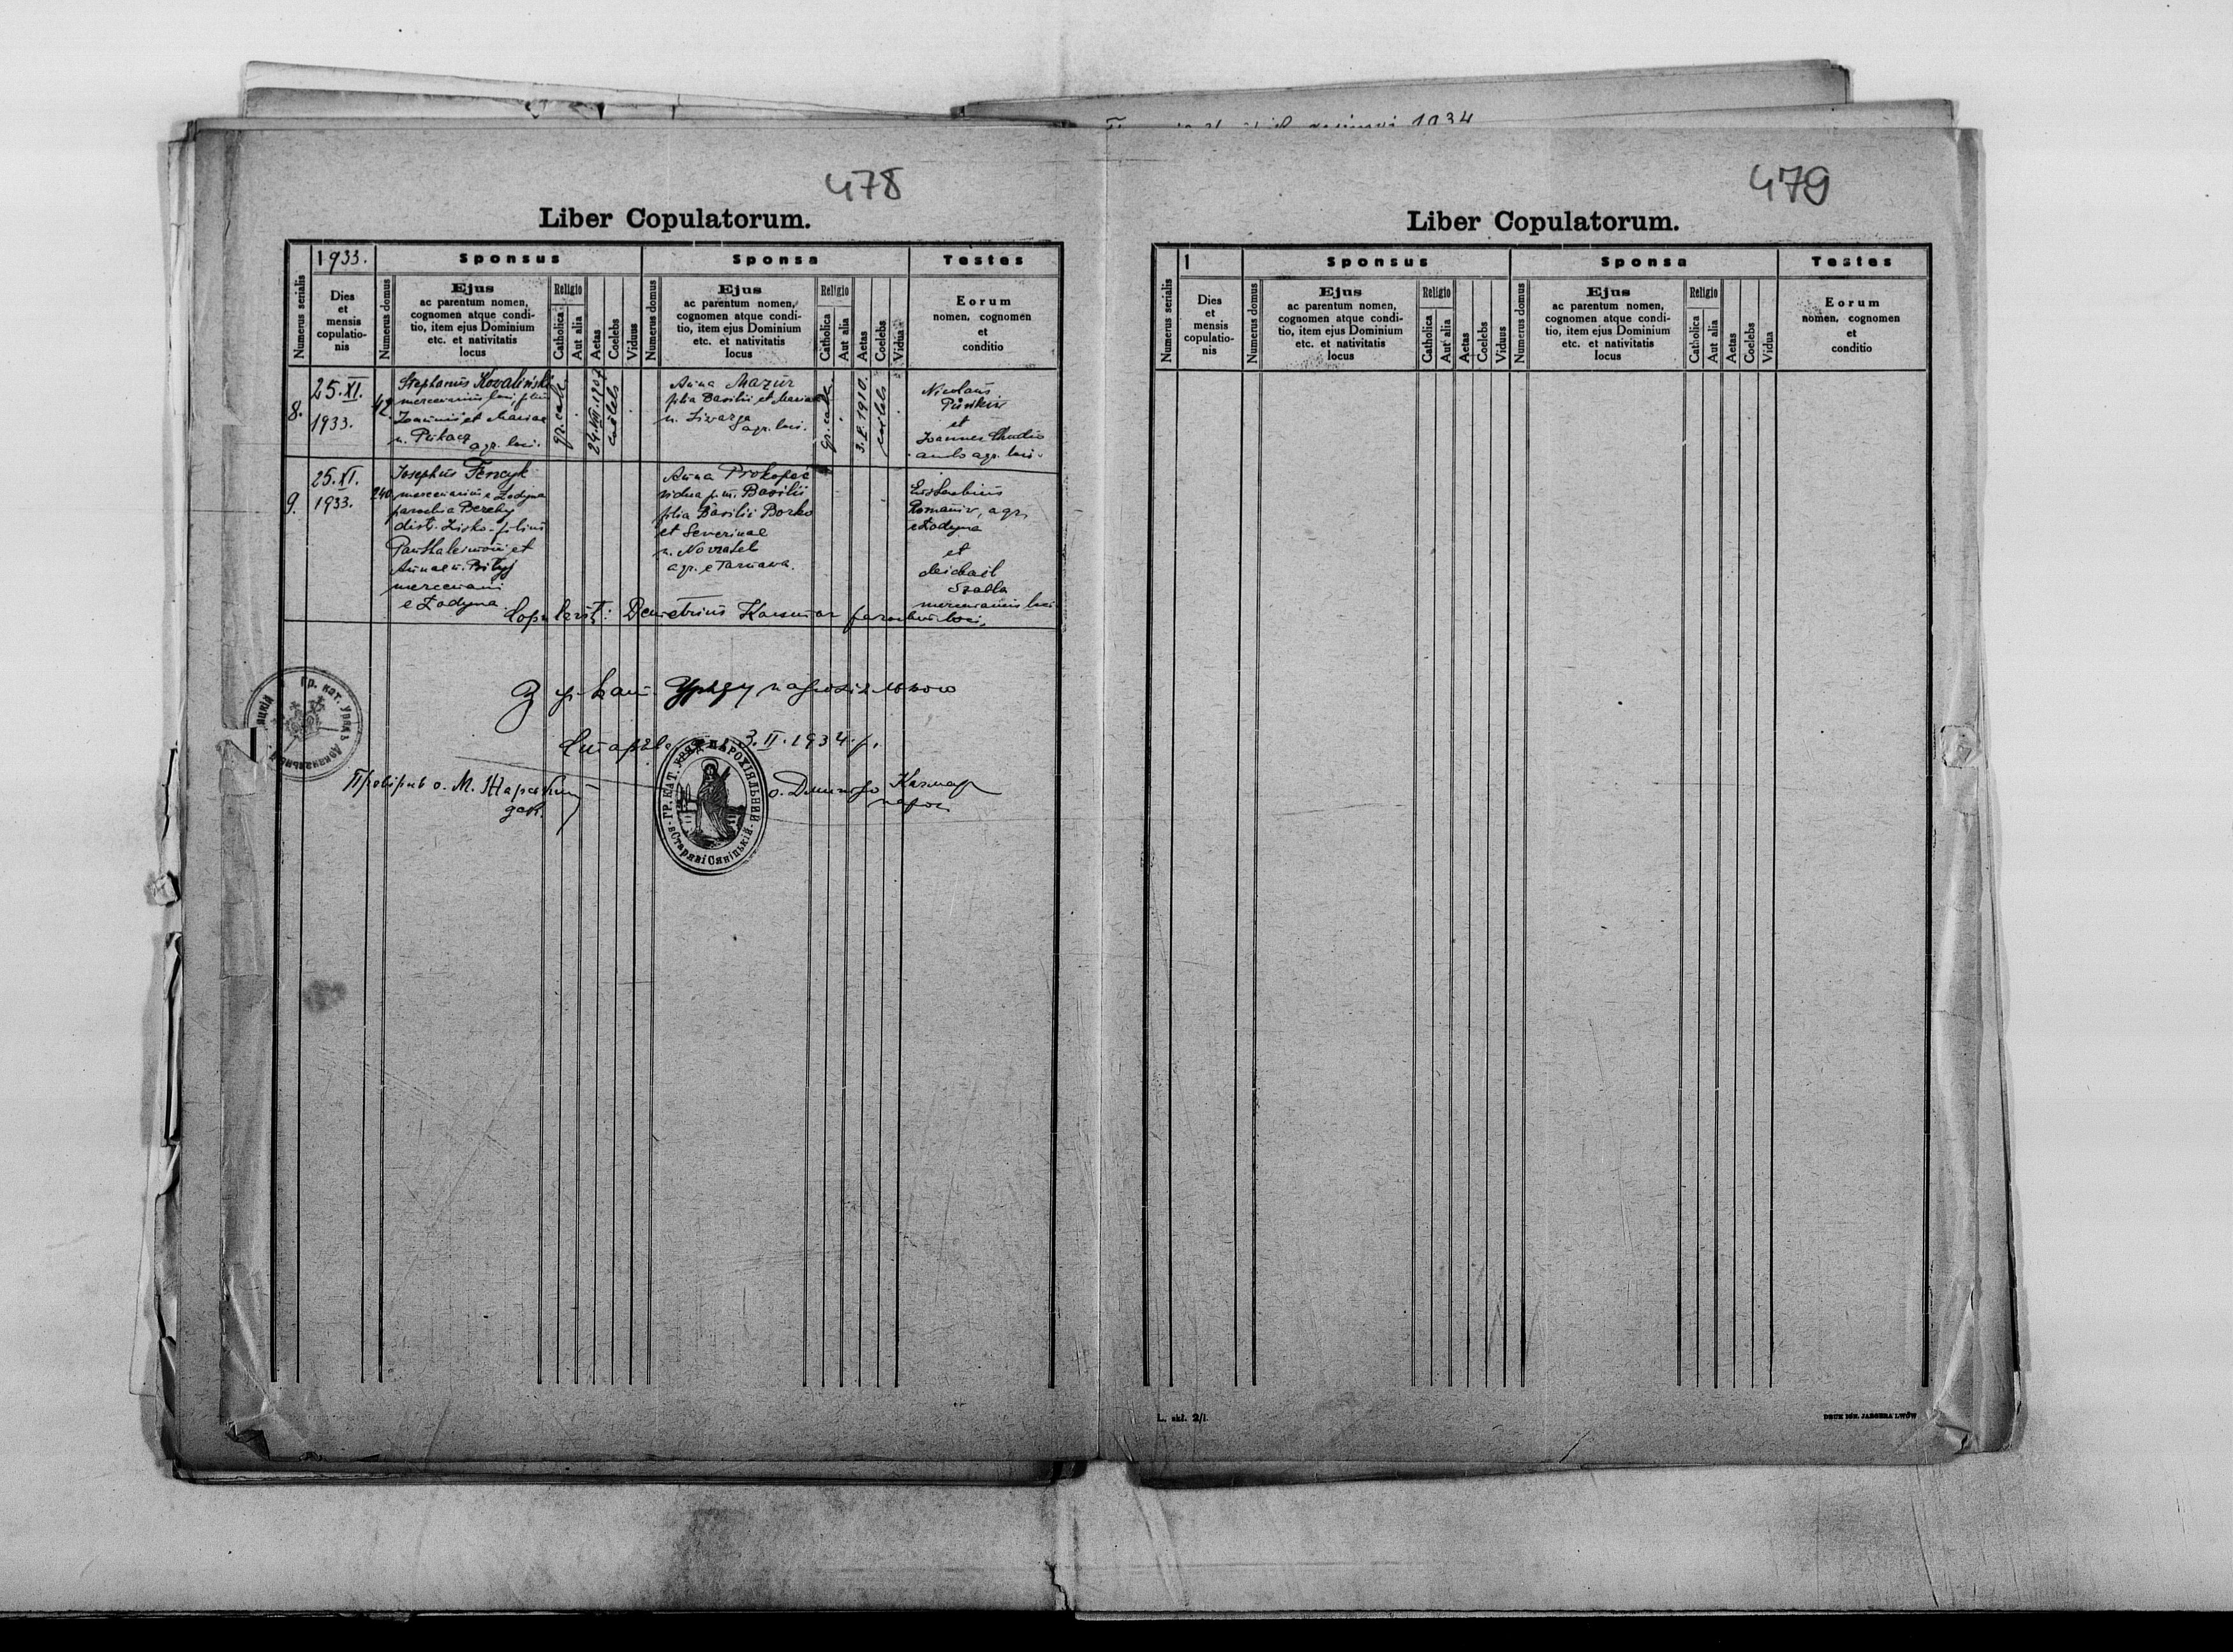 1934
478
Liber Copulatorum.
Numerus serialis
1933.
Dies et mensis copulatio-nis
Numerus domus
Sponsus
Ejus
ac parentum nomen,
cognomen atque condi-
tio, item ejus Dominium
etc. et nativitatis
locus
Religio
Catholica
Aut alia
Aetas
Coelebs
Viduus
Numerus domus
Sponsa
Ejus
ac parentum nomen,
cognomen atque condi-
tio, item ejus Dominium
etc. et nativitatis
locus
Religio
Catholica
Aut alia
Aetas
Coelebs
Vidua
Testes
Eorum
nomen, cognomen
et
conditio
8.
25. XI.
1933.
42
Stephanus Kovaliński
mercenarius loci filius
Joannis et Mariae
n. Pukacz
agr. loci.
gr. cath.
24.VIII.1907
coelebs
Anna Mazur
filia Basilii et Mariae
n.
agr. loci.
gr. cath.
3.X.1910.
coelebs
Nicolaus
et
Joannes
agr. loci.
9.
25. XI.
1933.
240
Josephus Fencyk
mercenarius e Żodyna
parochia Berehy
distr. Lisko filius
Panthaleimoni et
Annae n. Bilyj
mercenarii
e Żodyna.
Anna Prokopec
vidua p. m. Basilii
filia Basilii Borko
et Severinae
n.
agr. e Tarnawa.
Eustachius
Romaniv, agr.
e Żodyna
et
Michail
Szabla
mercenarius loci
Copulavit: Demetrius Kaszmar parochus loci.
З гр. кат. Уряду парохіяльного
Старява 3.II.1934 р.
Провірив о. М.
дек.
о. Дмитро
парох
Гр. кат. уряд деканальний
ГР. КАТ. УРЯД ПАРОХІЯЛЬНИЙ
в Старяві Сяніцькій
479
Liber Copulatorum.
Numerus serialis
1
Dies et mensis copulatio-nis
Numerus domus
Sponsus
Ejus
ac parentum nomen,
cognomen atque condi-
tio, item ejus Dominium
etc. et nativitatis
locus
Religio
Catholica
Aut alia
Aetas
Coelebs
Viduus
Numerus domus
Sponsa
Ejus
ac parentum nomen,
cognomen atque condi-
tio, item ejus Dominium
etc. et nativitatis
locus
Religio
Catholica
Aut alia
Aetas
Coelebs
Vidua
Testes
Eorum
nomen, cognomen
et
conditio
L. skł. 2/I.
DRUK IGN. JAEGERA LWÓW